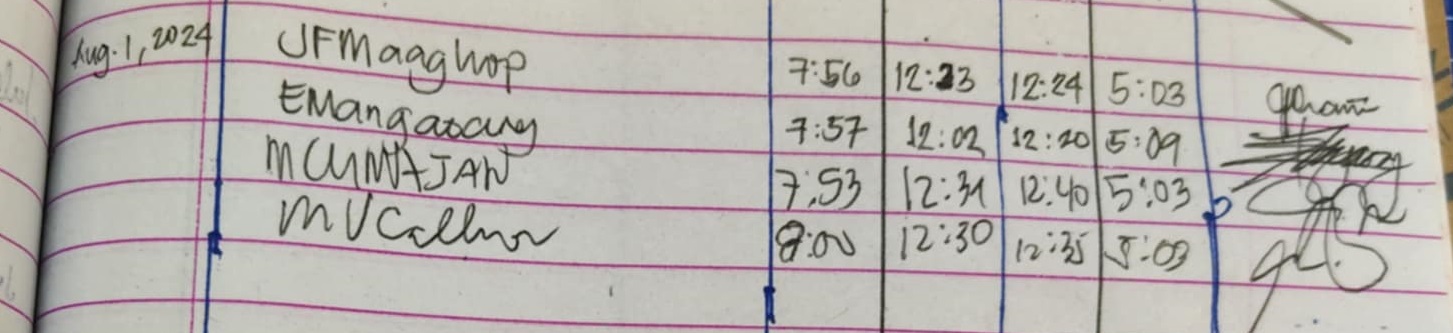 Aug. 1, 2024 JFMagghop 7:56 12:23 12:24 5:03
EMangaoang 7:57 12:02 12:20 5:09
MCUMAJAN 7:53 12:31 12:40 5:03
MV 8:00 12:30 12:35 5:03